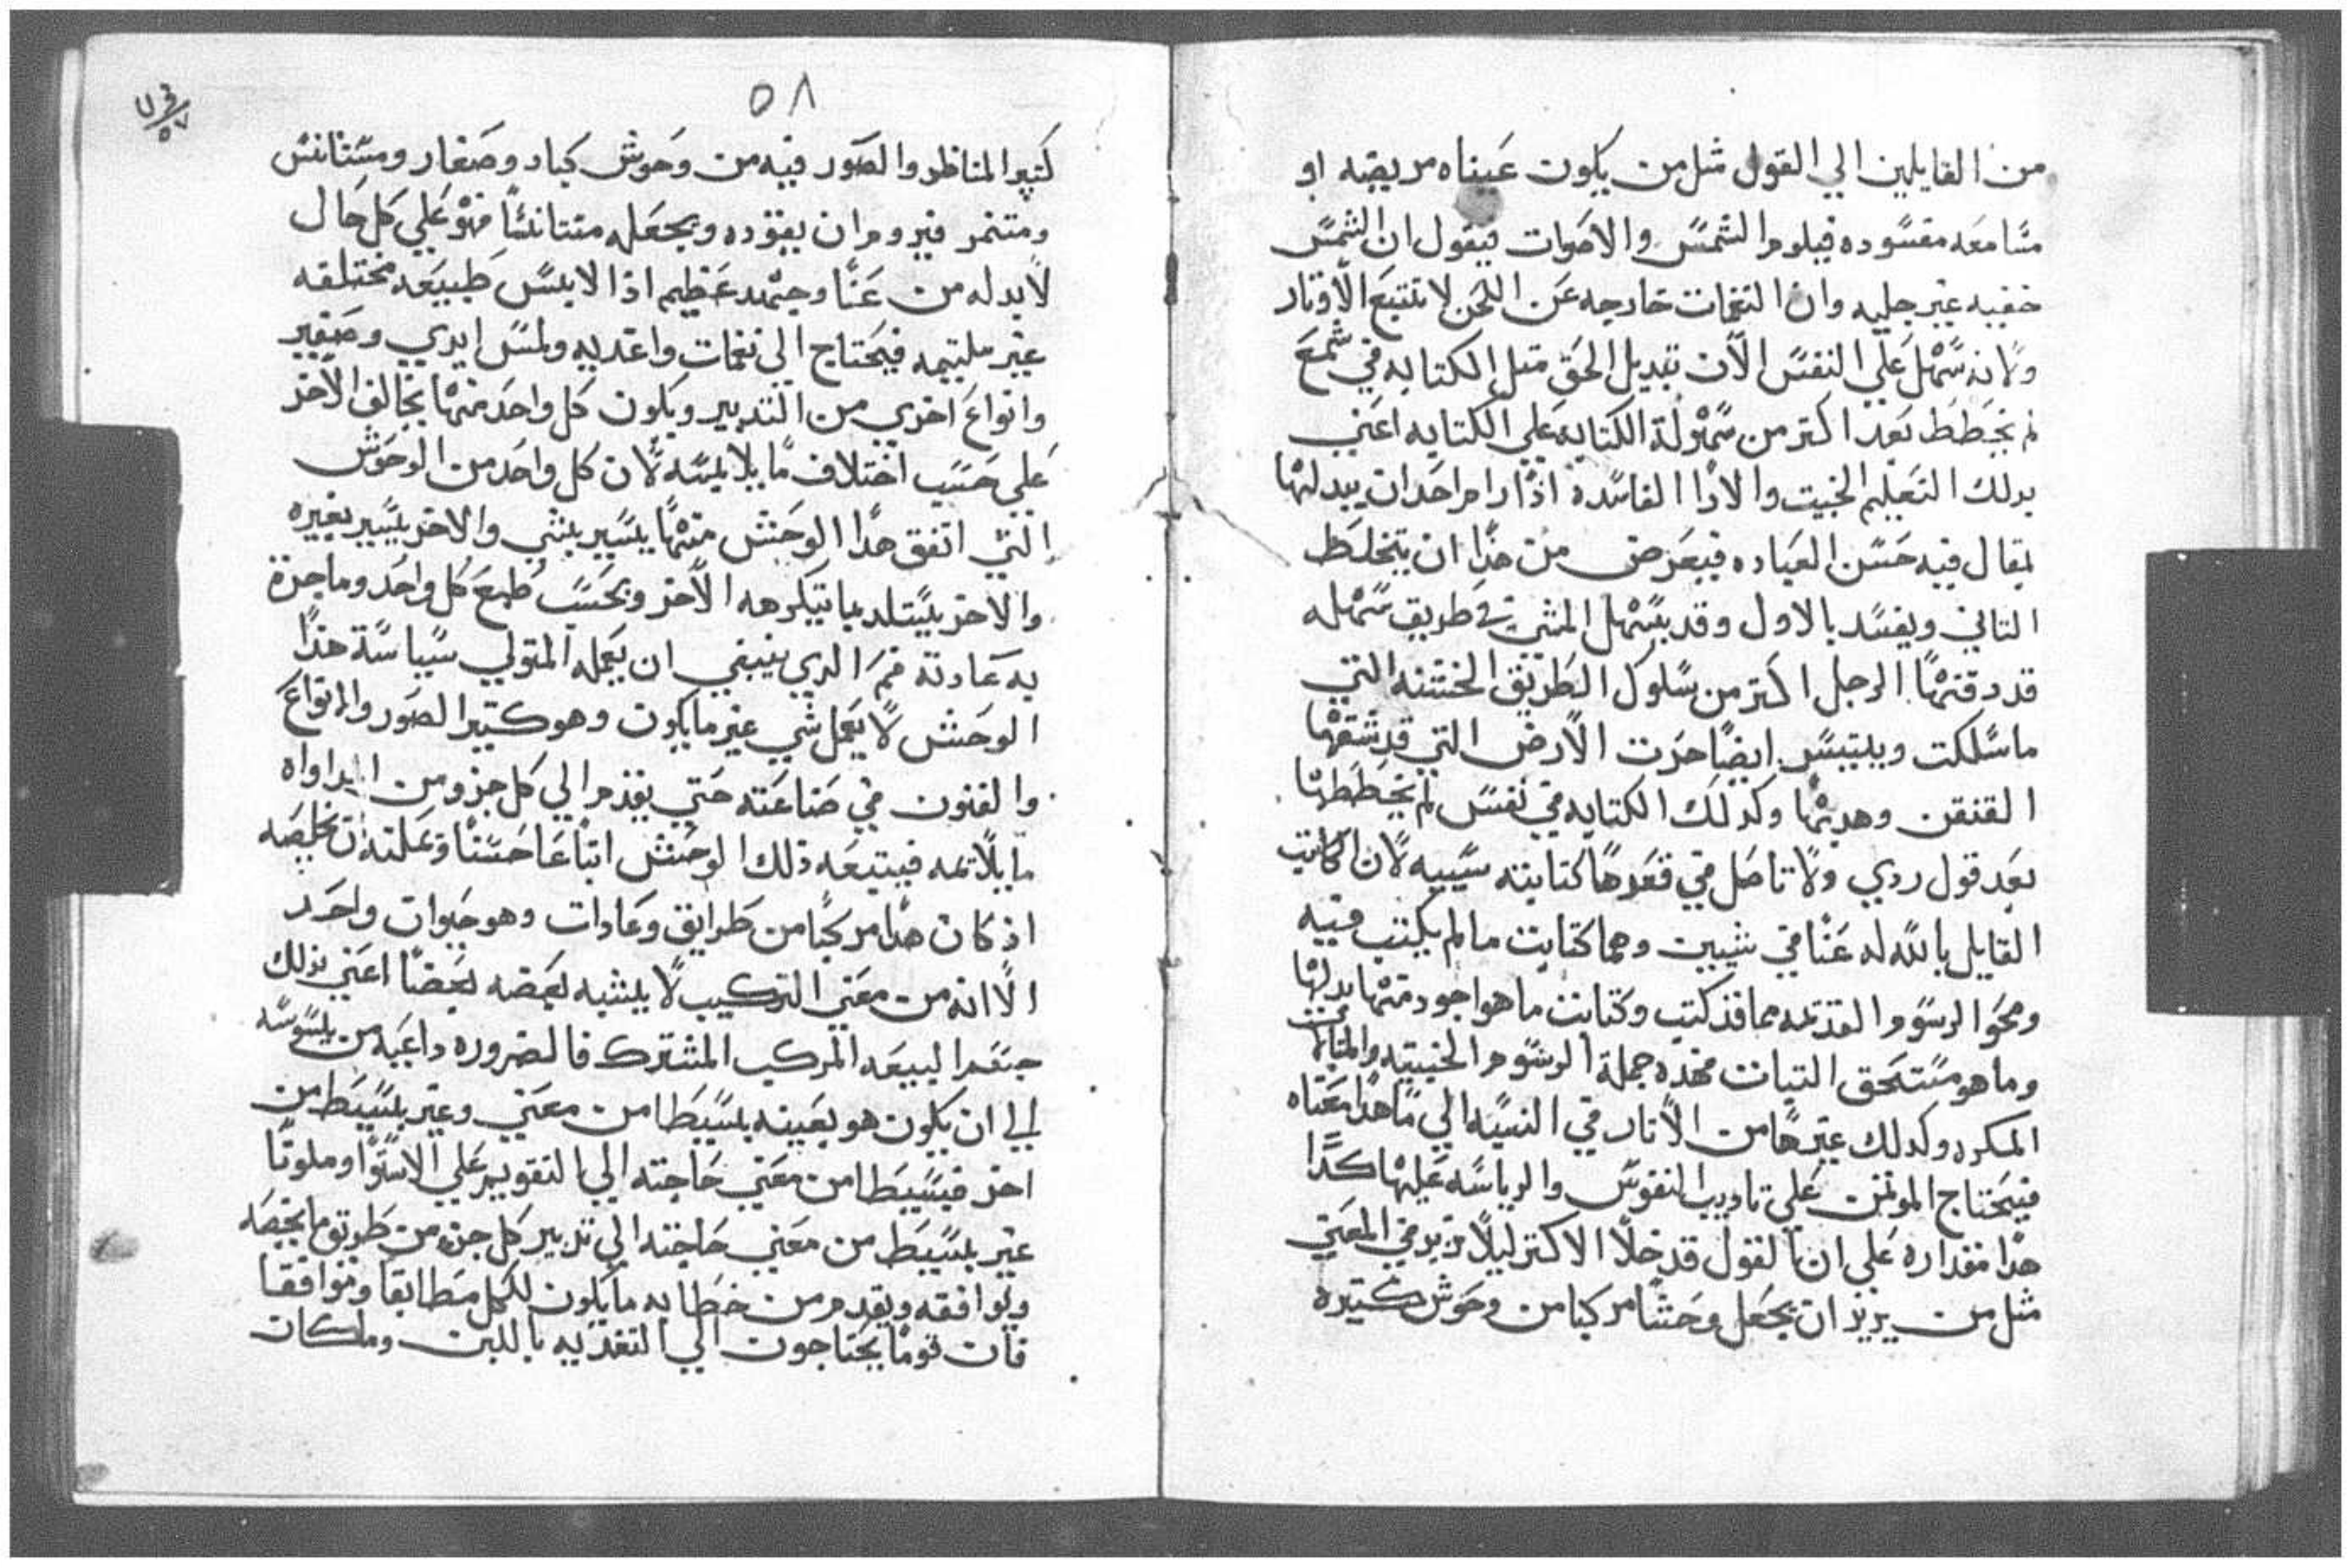 من القايلين الي القول مثل من يكون عيناه مريضه او
مسامعه مفسوده فيلوم الشمس والاصوات فيقول ان الشمس
خفيه غير جليه وان النغمات خارجه عن اللحن لا تتبع الاوتار
ولانه سهل علي النفس الان تبديل الحق مثل الكتابه في شمع
لم يخطط بعد اكتر من سهولة الكتابه علي الكتابه اعني
بدلك التعليم الخبيت والارا الفاسده اذا رام احد ان يبدلها
يقال فيه حسن العباده فيعرض من هذا ان يتخلط
التاني ويفسد بالاول وقد يسهل المشي في طريق سهله
قد دقتها الرجل اكتر من سلوك الطريق الخشنه التي
ما سلكت ويتيسر ايضا حرت الارض التي قد شقها
القنقن وهديها وكدلك الكتابه في نفس لم يخططها
بعد قول ردي ولا تاصل في قعرها كتابته سييه لان الكاتب
القايل بالله له عنا في شيين وهما كتابت ما لم يكتب فيه
ومحوا الرسوم القديمه مما قد كتب وكتابت ما هو اجود منها بدلها
وما هو مستحق التبات فهده جملة الرسوم الخبيته والمتالم
المكره وكدلك غيرها من الاتار في النسبه الي ما هدا معناه
فيحتاج الموتمن علي تاديب النفوس والرياسه عليها كدا
هدا مقداره علي ان القول قد خلا الاكتر ليلا نزيد في المعني
مثل من يريد ان يجعل وحشا مركبا من وحوش كتيره
٥٨
كتير المناظر والصور فيه من وحوش كبار وصغار ومستانس
ومتنمر فيروم ان يقوده ويجعله متانسا فهو علي كل حال
لا بد له من عنا وجهد عظيم اذا لابس طبيعه مختلفه
غير مليتيمه فيحتاج الي نغمات واغديه ولمس ايدي وصفير
وانواع اخري من التدبير ويكون كل واحد منها يخالف الاخر
علي حسب اختلاف ما يلايمه لان كل واحد من الوحوش
التي اتفق هدا الوحش منها يسير بشي والاخر يسير بغيره
والاخر يستلد بما يتكرهه الاخر وبحسب طبع كل واحد وما جرة
به عادته فمر الدي ينبغي ان يعمله المتولي سياسة هذا
الوحش لا يعمل شي غير ما يكون وهو كتير الصور والانواع
والفنون في صناعته حتي يقدم الي كل جزو من
ما يلايمه فيتبعه ذلك الوحش اتباعا حسنا
اذ كان هدا مركبا من طرايق وعادات وهو حيوان واحد
الا انه من معني التركيب لا يشبه بعضه بعضا اعني بدلك
جسم البيعه المركب المشترك فالضروره داعيه من يسوسه
الي ان يكون هو بعينه بسيطا من معني وغير بسيط من
اخر فبسيطا من معني حاجته الي التقويم علي الاستوا وملونا
غير بسيط من معني حاجته الي تدبير كل جزو من طريق ما يخصه
ويوافقه ويقدم من خطابه ما يكون لكل مطابقا وموافقا
فان قوما يحتاجون الي التغديه باللبن وما كان